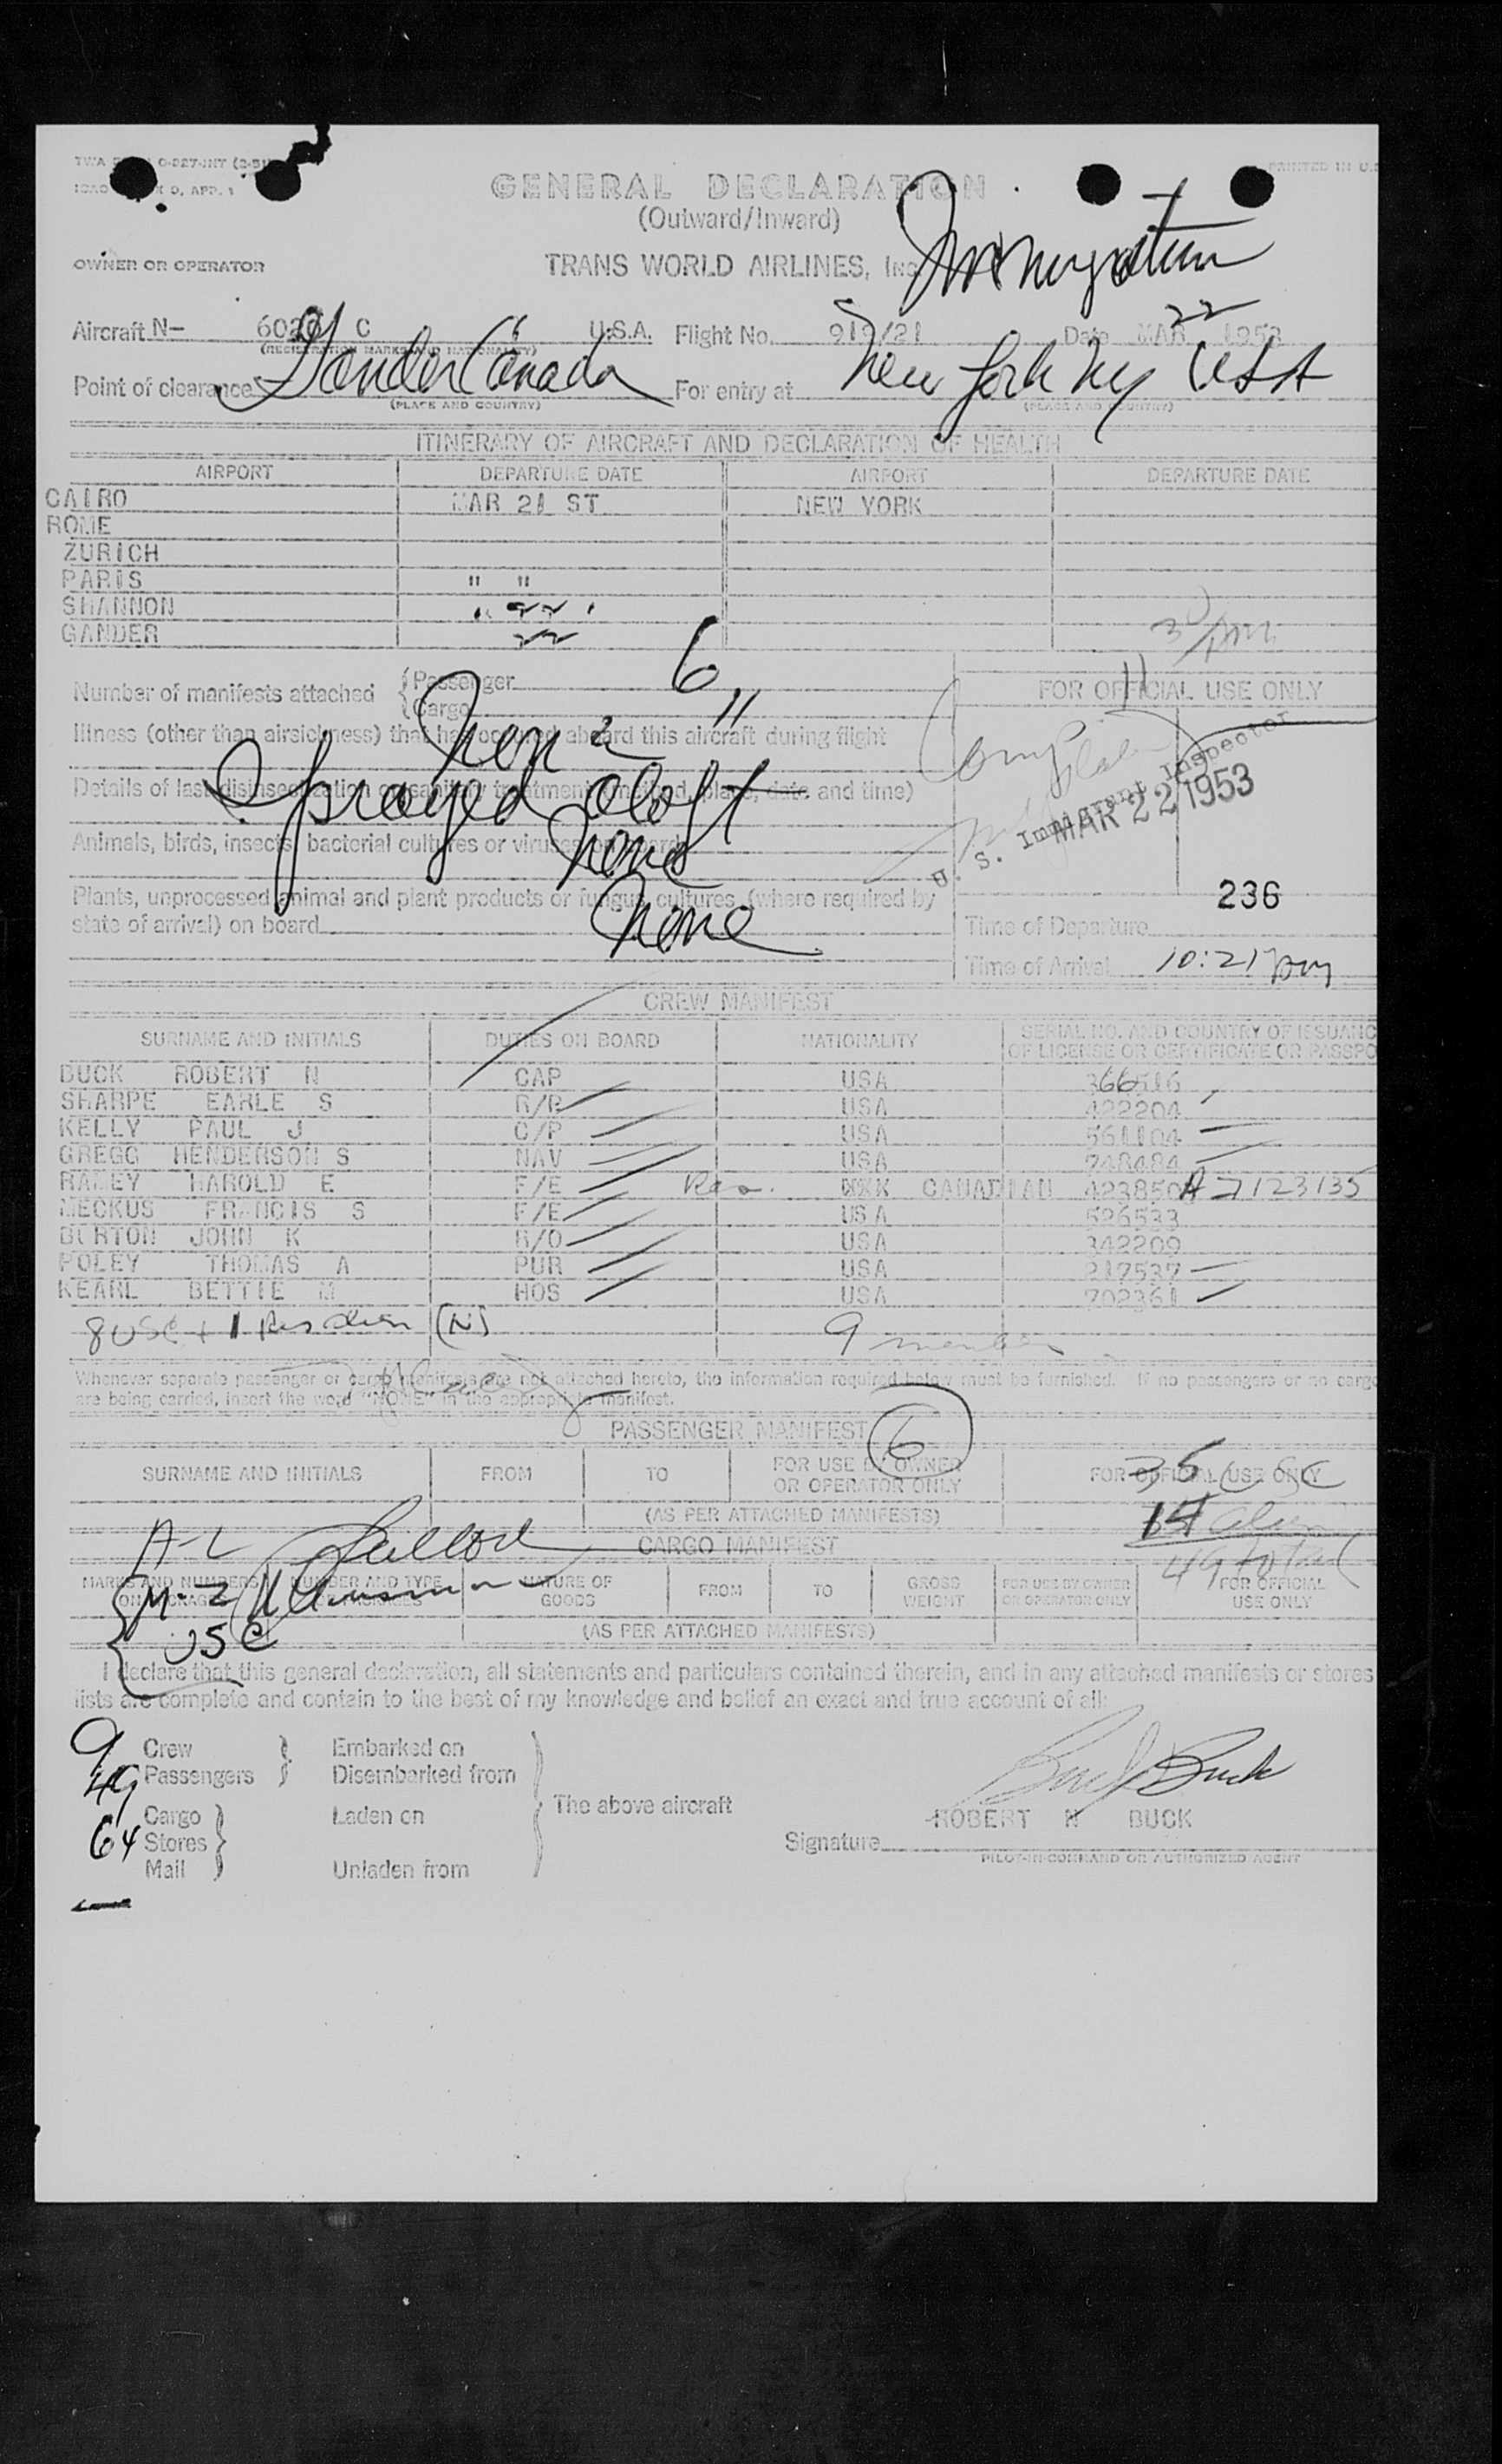 GENERAL DECLARATION
(Outward/Inward)
Immigration
OWNER OR OPERATOR TRANS WORLD AIRLINES, INC
Aircraft N- C U.S.A. Flight No. 919/21 Date MAR 22 1953
(REGISTRATION MARKS AND NATIONALITY)
Point of clearance Gander Canada For entry at New York NY USA
(PLACE AND COUNTRY) (PLACE AND COUNTRY)
ITINERARY OF AIRCRAFT AND DECLARATION OF HEALTH
AIRPORT DEPARTURE DATE AIRPORT DEPARTURE DATE
CAIRO MAR 21 ST NEW YORK
ROME
ZURICH
PARIS " "
SHANNON " 22
GANDER 22
Number of manifests attached Passenger 6
Cargo "
FOR OFFICIAL USE ONLY
Illness (other than airsickness) that has occurred aboard this aircraft during flight
None
Details of last disinsectization or sanitary treatment (method, place, date and time)
Sprayed aloft
U. S. Immigrant Inspector
MAR 22 1953
Animals, birds, insects, bacterial cultures or viruses on board
None
Plants, unprocessed animal and plant products or fungus cultures (where required by
state of arrival) on board None
236
Time of Departure
Time of Arrival 10:21 pm
CREW MANIFEST
SURNAME AND INITIALS DUTIES ON BOARD NATIONALITY SERIAL NO. AND COUNTRY OF ISSUANC
OF LICENSE OR CERTIFICATE OR PASSPO
BUCK ROBERT N CAP USA 366516
SHARPE EARLE S USA 422204
KELLY PAUL J USA 561104
GREGG HENDERSON S NAV USA 748484
RAMEY HAROLD E F/E Res. CANADIAN A-7123135
MECKUS FRANCIS S F/E USA 526533
BURTON JOHN K USA 342209
FOLEY THOMAS A PUR USA 217537
KEARL BETTIE M HOS USA 702361
8 USC + 1 Res alien (N) 9 members
Whenever separate passenger or cargo manifests are not attached hereto, the information required below must be furnished. If no passengers or no cargo
are being carried, insert the word "NONE" in the appropriate manifest.
PASSENGER MANIFEST 6
SURNAME AND INITIALS FROM TO FOR USE BY OWNER OR OPERATOR ONLY FOR OFFICIAL USE ONLY
35 USC
(AS PER ATTACHED MANIFESTS) 14 alien
49 total
A-L
CARGO MANIFEST
MARKS AND NUMBERS ON PACKAGES NUMBER AND TYPE OF PACKAGES NATURE OF GOODS FROM TO GROSS WEIGHT FOR USE BY OWNER OR OPERATOR ONLY FOR OFFICIAL USE ONLY
M-Z
USC
(AS PER ATTACHED MANIFESTS)
I declare that this general declaration, all statements and particulars contained therein, and in any attached manifests or stores
lists are complete and contain to the best of my knowledge and belief an exact and true account of all:
9 Crew Embarked on
49 Passengers Disembarked from
The above aircraft
64 Cargo Laden on
Stores
Mail Unladen from
Buck
ROBERT N BUCK
Signature
PILOT-IN-COMMAND OR AUTHORIZED AGENT